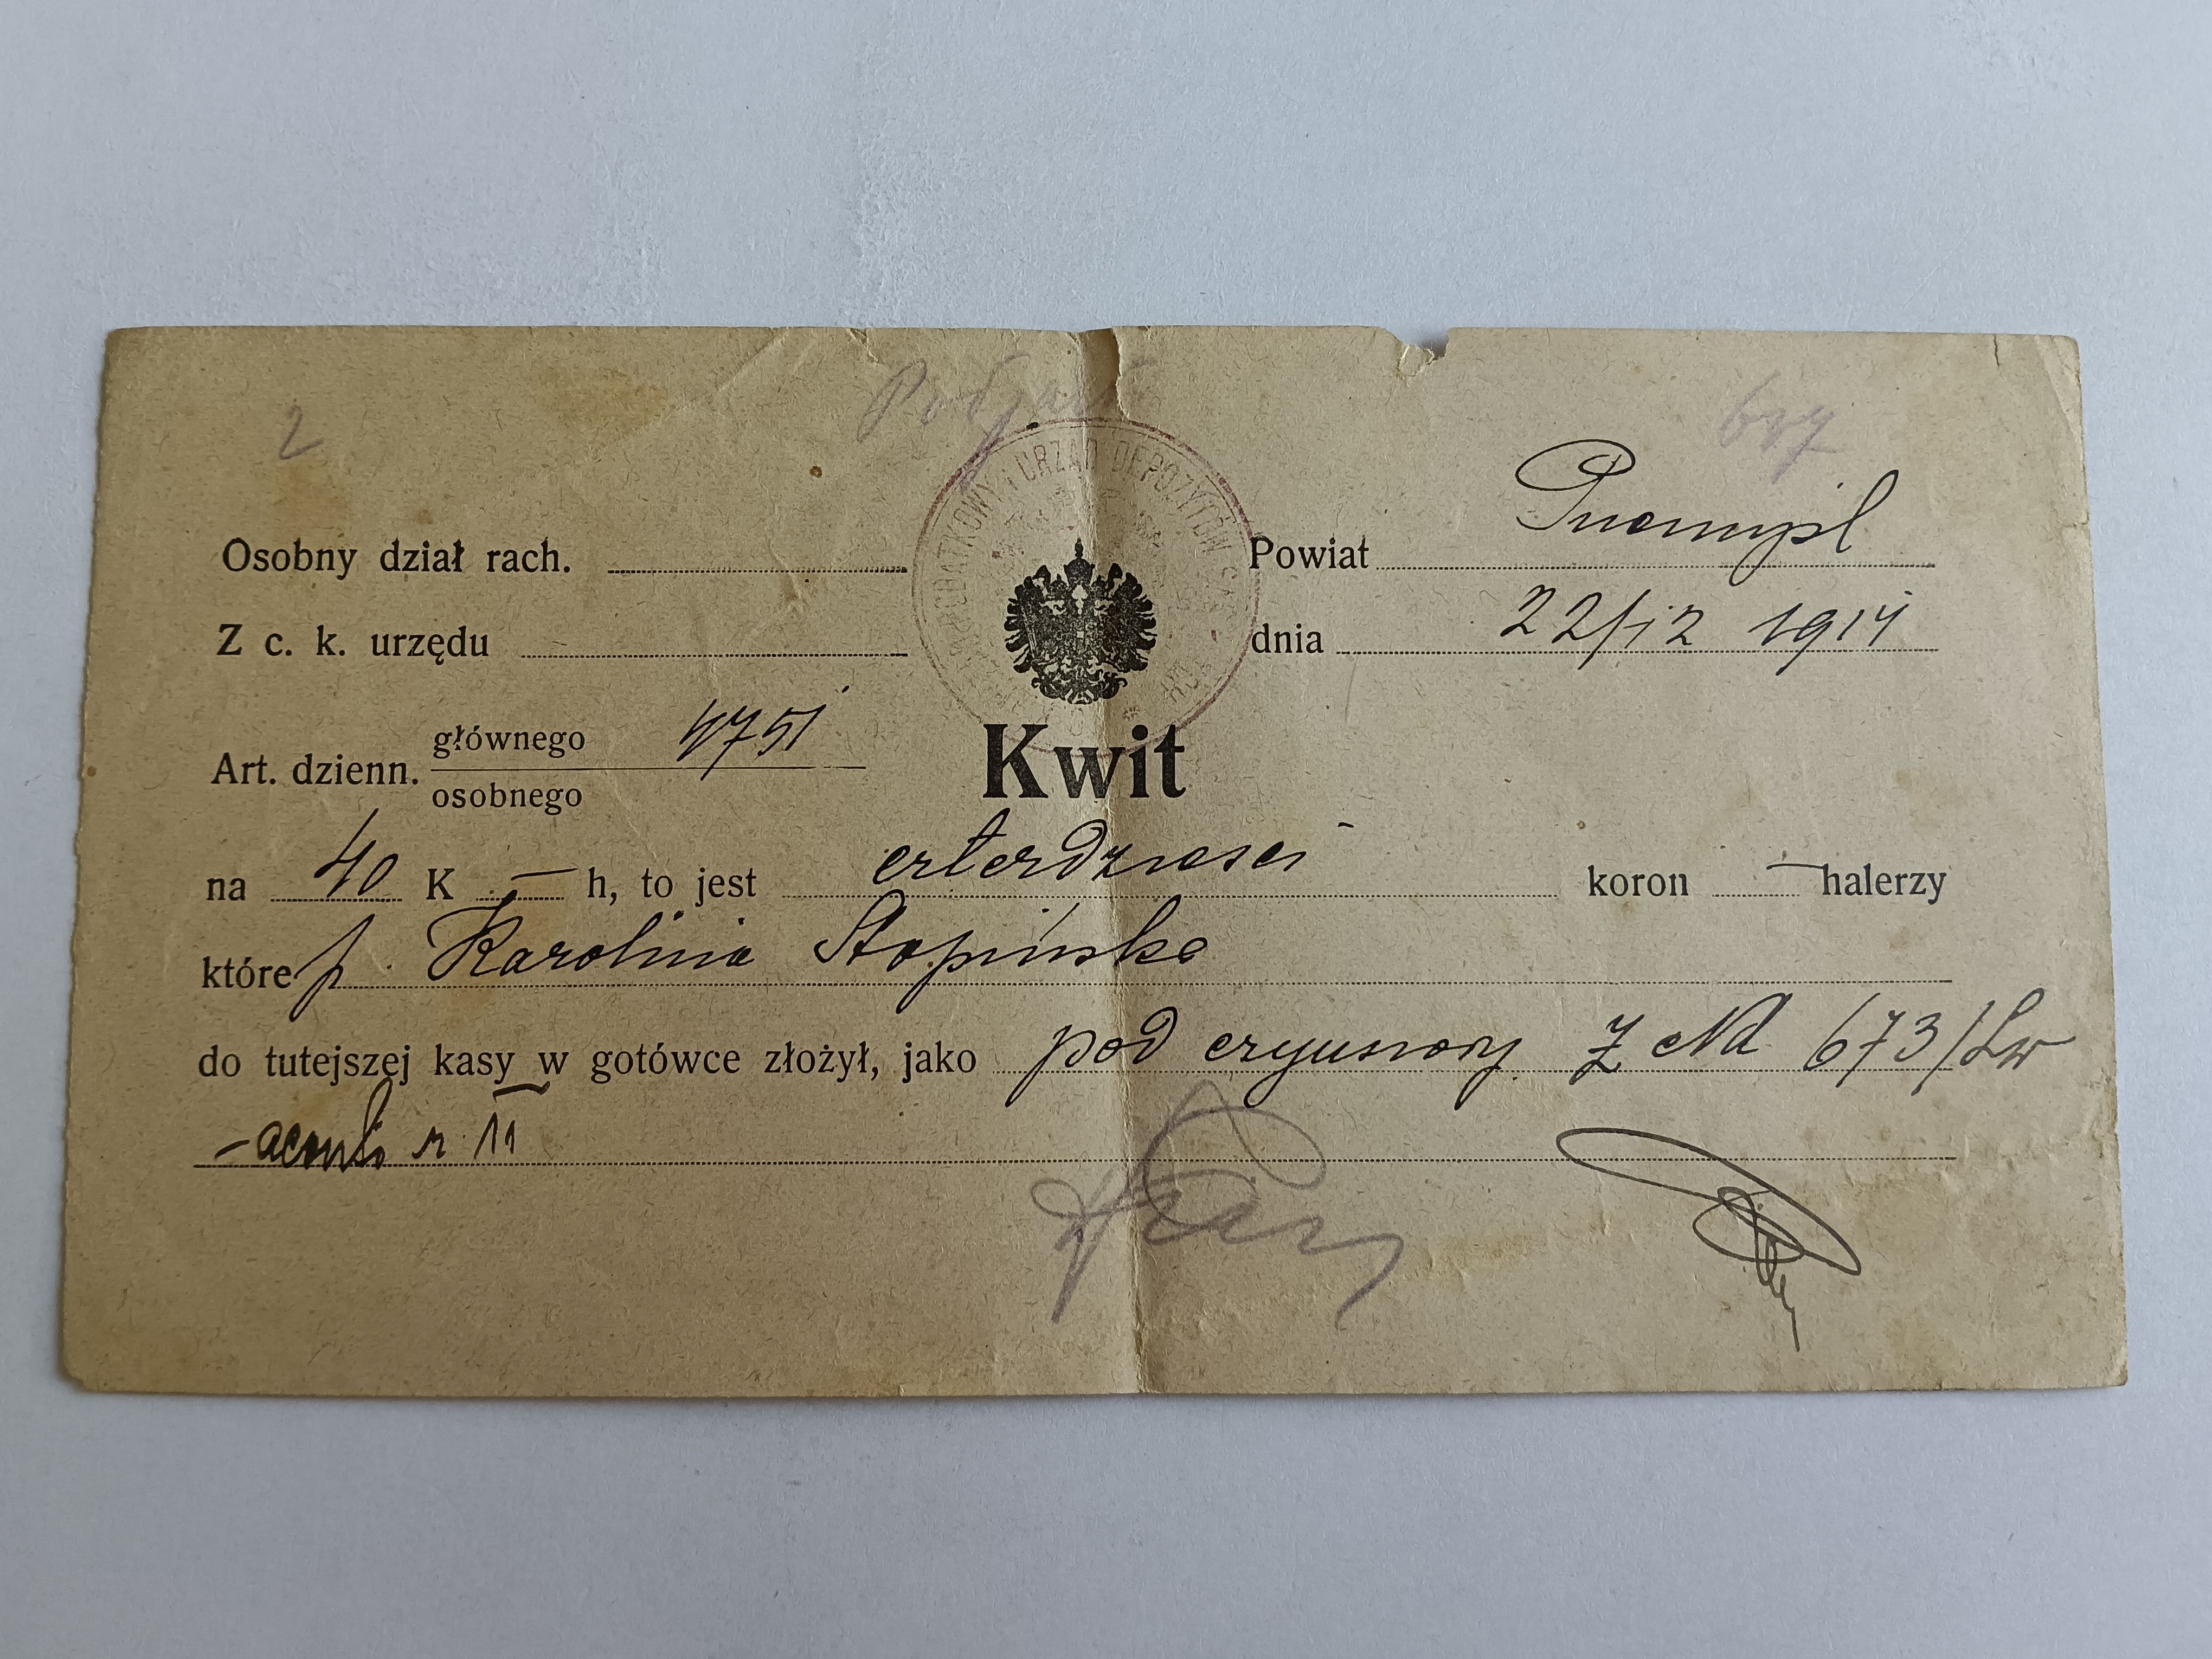 2
Osobny dział rach.
Powiat Przemyśl
Z c. k. urzędu
dnia 22/12 1914
URZĄD DEPOZYTÓW
Art. dzienn. głównego 4751
osobnego
Kwit
na 40 K — h, to jest czterdzieści — koron — halerzy
które p. Karolina Stopińska
do tutejszej kasy w gotówce złożył, jako pod czynszowy z Nd 673/Lw
- aconto r 11